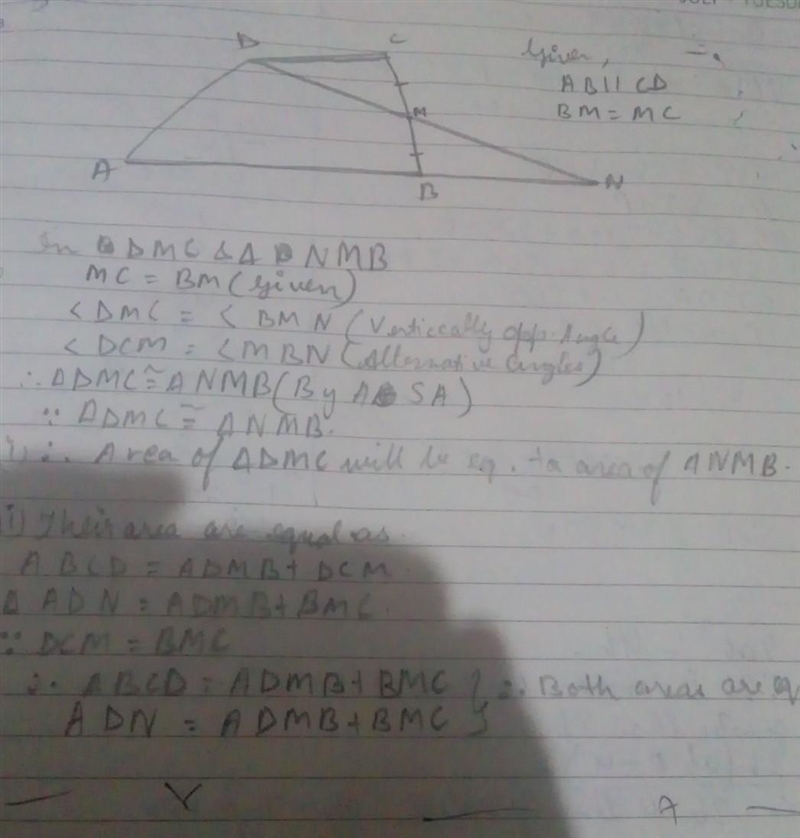 D C
Given,
AB || CD
BM = MC
M
A B N
In DMC & Δ NMB
MC = BM (Given)
< DMC = < BMN (Verticcally opp. Angle)
< DCM = < MBN (Alternative angles)
∴ ΔDMC ≅ ΔNMB (By ASA)
∵ ΔDMC ≅ ΔNMB.
i) ∴ Area of ΔDMC will be eq. to area of ΔNMB.
i) Their area are equal as
ABCD = ADMB + DCM.
Δ ADN = ADMB + BMC.
∵ DCM = BMC
∴ ABCD = ADMB + BMC } ∴ Both areas are eq
ADN = ADMB + BMC }